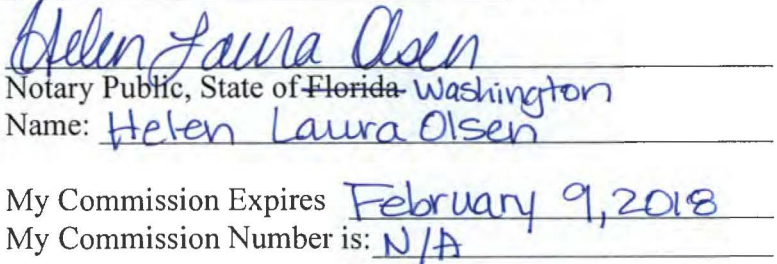 Helen Laura Olsen
Notary Public, State of Florida Washington
Name: Helen Laura Olsen
My Commission Expires February 9, 2018
My Commission Number is: N/A